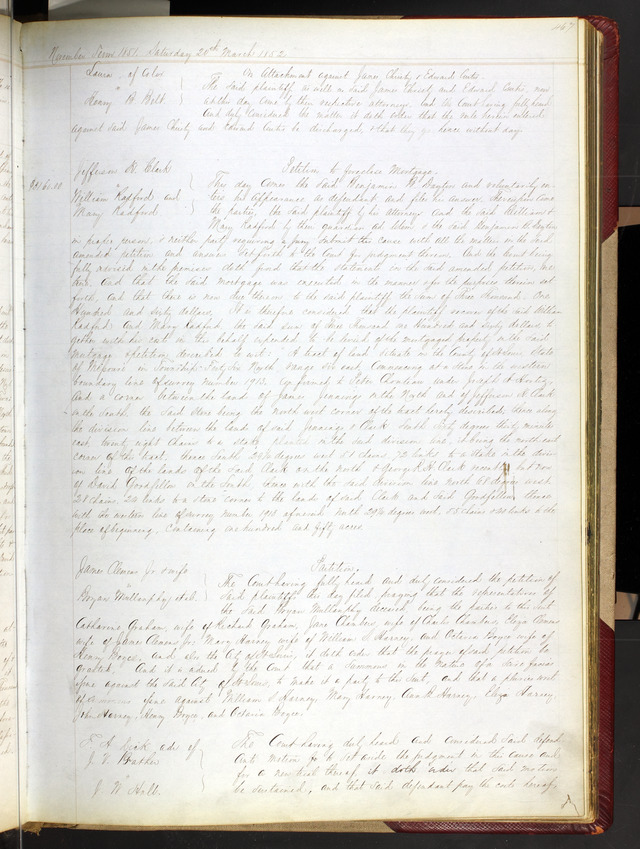 467
November Term 1851. Saturday 20th March 1852
Laura, of Color
"
Henry B. Belt
On Attachment against James Christy & Edward Curtis.
The said plaintiff as well as said James Christy and Edward Curtis, now
at this day come by their respective attorneys, and the Court having fully heard
and duly considered the matter it doth order that the rule herein entered
against said James Christy and Edward Curtis be discharged, & that they go hence without day
Jefferson K. Clark
"
William Radford and
Mary Radford
Petition to foreclose Mortgage.
This day comes the said Benjamin and voluntarily en-
ters his appearance as defendant and files his answer. Whereupon come
the parties, the said plaintiff by his attorney and the said William &
Mary Radford by their guardian ad litem & the said Benjamin
in proper person, & neither party requiring a jury submit this cause with all the matters in the said
amended petition and answer set forth to the Court for judgment thereon. And the Court being
fully advised in the premises doth find that the statements in the said amended petition, are
true. And that the said mortgage was executed in the manner & for the purposes therein set
forth, and that there is now due thereon to the said plaintiff the sum of Three thousand, One
Hundred and sixty dollars, It is therefore considered that the plaintiff recover of the said William
Radford and Mary Radford the said sum of three thousand one Hundred and sixty dollars to
gether with his costs in this behalf expended to be levied of the mortgaged property in the said
mortgage & petition described to wit: A tract of land situate in the County of St Louis State
of Missouri in Township Forty six North range six east, Commencing at a stone in the western
boundary line of survey number 1913. Confirmed to Peter Chouteau under Joseph
and a corner between the lands of James Jennings on the North and of Jefferson K. Clark
on the South, the said stone being the north west corner of the tract hereby described, thence along
the division line between the land of said Jennings & Clark South sixty degrees thirty minutes
east, twenty eight chains to a stake planted in the said division line, it being the north east
corner of the tract, thence South 29½ degrees west 51 chains, 72 links to a stake in the divis-
ion line of the lands of the said Clark on the north & George R. H. Clark recently but now
of David Goodfellow on the South, thence with the said division line north 61 degrees west
28 chains, 24 links to a stone corner to the lands of said Clark and said Goodfellow, thence
with the western line of survey number 1913 aforesaid North 29½ degrees east, 55 chains & links to the
place of beginning, Containing one hundred and fifty acres
James Clemens Jr & wife
"
Bryan Mullanphy Adl.
Partition.
The Court having fully heard and duly considered the petition of
said plaintiffs this day filed praying that the representatives of
the said Bryan Mullanphy deceased, being the parties to this suit
Catharine Graham, wife of Richard Graham, Jane Chambers wife of Charles Chambers, Eliza Clemens
wife of James Clemens Jr, Mary Harney wife of William S. Harney, and Octavia Boyce wife of
Henry Boyce, and also the City of St Louis, it doth order that the prayer of said petition be
granted. And it is ordered by the Court that a Summons in the nature of a scire facias
issue against the said City of St Louis, to make it a party to the suit, and that a pluries writ
of summons issue against William S Harney, Mary Harney, Ann B. Harney, Eliza Harney,
John Harney, Henry Boyce, and Octavia Boyce.
F. A. Dick, adr of
J. V. Prather
"
J. W. Hall.
The Court having duly heard and considered said defend-
ants motion to set aside the judgment in this cause and
for a new trial thereof it doth order that said motion
be sustained, and that said defendant pay the costs hereof